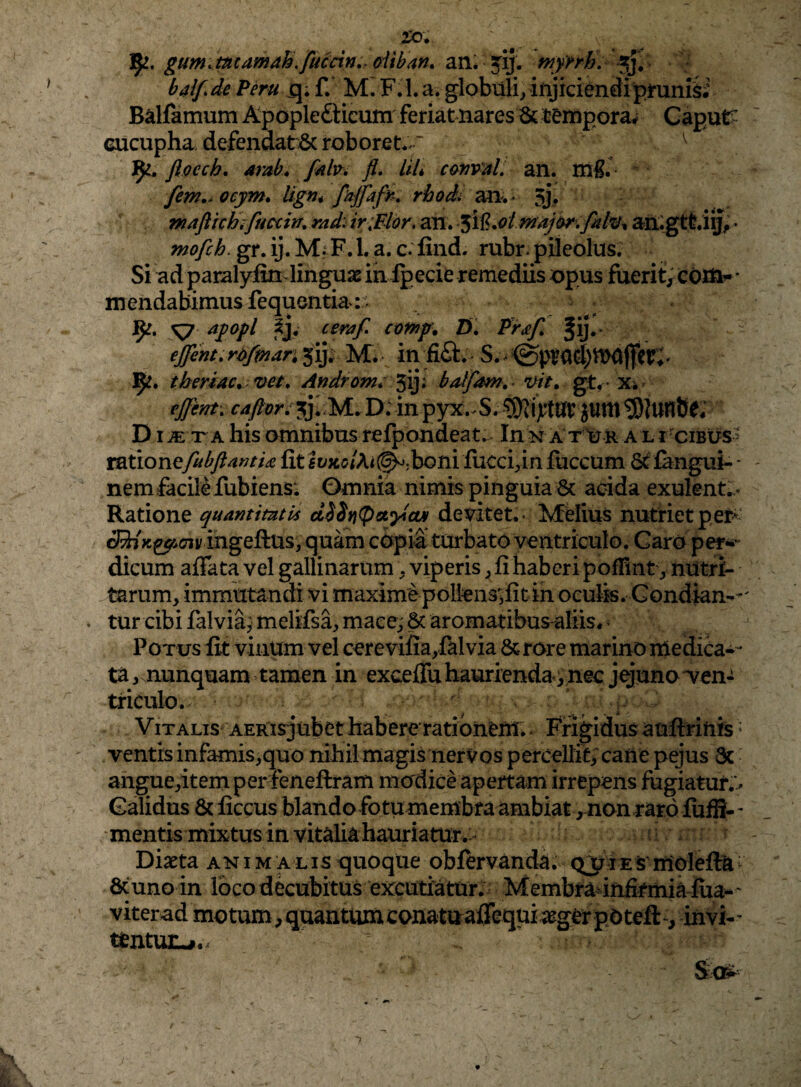 20.
℞. gum. tacamah. succin. oliban. an. ʒij. myrrh. ʒj.
bals. de Peru q. s. M. F. l. a. globuli, injiciendi prunis.
Balsamum Apoplecticum feriat nares & tempora. Caput
cucupha defendat & roboret.
℞. floech. arab. salv. fl. lil. conval. an. mß.
sem. ocym. lign. sassafr. rhod. an. ʒj.
mastich. succin. rad. ir. Flor. an. ʒiß. ol major. salv. an. gtt. iij.
mosch. gr. ij. M. F. l. a. c. sind. rubr. pileolus.
Si ad paralysin linguæ in specie remediis opus fuerit, com-
mendabimus sequentia:
℞. 🜄 apopl ℥j. ceras. comp. D. Præs. ℥ij.
essent. rosmar. ʒij. M. in fict. S. Sprachwasser.
℞. theriac. vet. Androm. ʒij. balsam. vit. gt. x.
essent. castor. ʒj. M. D. in pyx. S. Mixtur zum Munde.
DIÆTA his omnibus respondeat. In NATURALI CIBUS
ratione substantiæ sit ευχοιλι(@), boni succi, in succum & sangui-
nem facile subiens. Omnia nimis pinguia & acida exulent.
Ratione quantitatis ἀδδηφαγίαν devitet. Melius nutriet per
ingestus, quàm copiâ turbato ventriculo. Caro per-
dicum assata vel gallinarum, viperis, si haberi possint, nutri-
tarum, immutandi vi maxime pollens, sit in oculis. Condian-
tur cibi salviâ, melissâ, mace, & aromatibus aliis.
POTUS sit vinum vel cerevisia, salvia & rore marino medica-
ta, nunquam tamen in excessu haurienda, nec jejuno ven-
triculo.
VITALIS AERIS jubet habere rationem. Frigidus austrinis
ventis infamis, quo nihil magis nervos percellit, cane pejus &
angue, item per fenestram modicè apertam irrepens fugiatur.
Calidus & siccus blando fotu membra ambiat, non raro suffi-
mentis mixtus in vitalia hauriatur.
Diæta ANIMALIS quoque observanda. QUIES molesta
& uno in loco decubitus excutiatur. Membra infirmia sua-
viter ad motum, quantum conatu assequi æger potest, invi-
tentur.
So-